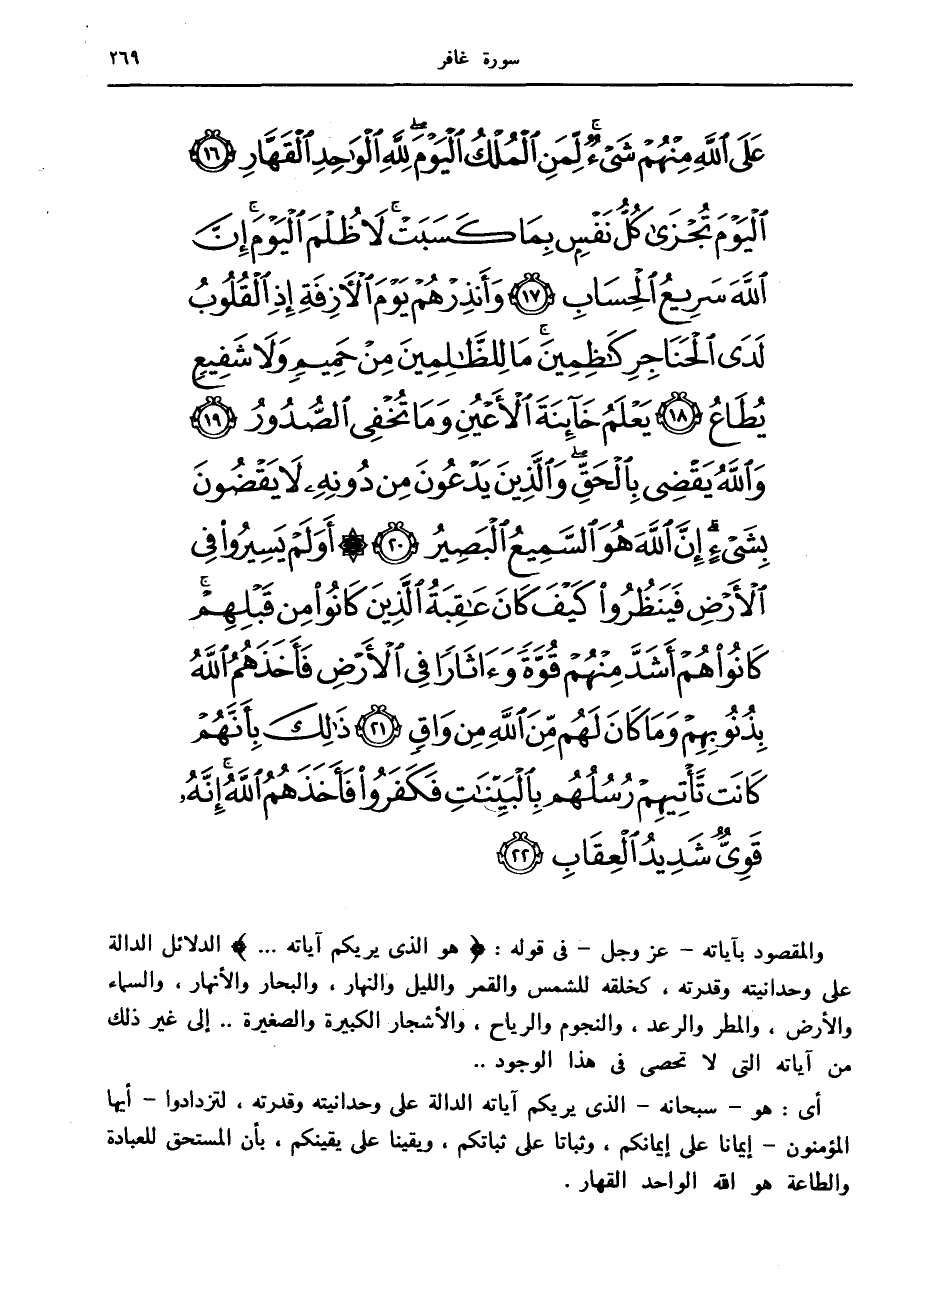 سورة غافر ٢٦٩
عَلَى ٱللَّهِ مِنْهُمْ شَىْءٌ ۚ لِّمَنِ ٱلْمُلْكُ ٱلْيَوْمَ ۖ لِلَّهِ ٱلْوَٰحِدِ ٱلْقَهَّارِ ١٦
ٱلْيَوْمَ تُجْزَىٰ كُلُّ نَفْسٍۭ بِمَا كَسَبَتْ ۚ لَا ظُلْمَ ٱلْيَوْمَ ۚ إِنَّ
ٱللَّهَ سَرِيعُ ٱلْحِسَابِ ١٧ وَأَنذِرْهُمْ يَوْمَ ٱلْأَزِفَةِ إِذِ ٱلْقُلُوبُ
لَدَى ٱلْحَنَاجِرِ كَٰظِمِينَ ۚ مَا لِلظَّٰلِمِينَ مِنْ حَمِيمٍ وَلَا شَفِيعٍ
يُطَاعُ ١٨ يَعْلَمُ خَآئِنَةَ ٱلْأَعْيُنِ وَمَا تُخْفِى ٱلصُّدُورُ ١٩
وَٱللَّهُ يَقْضِى بِٱلْحَقِّ ۖ وَٱلَّذِينَ يَدْعُونَ مِن دُونِهِۦ لَا يَقْضُونَ
بِشَىْءٍ ۗ إِنَّ ٱللَّهَ هُوَ ٱلسَّمِيعُ ٱلْبَصِيرُ ٢٠ ۞ أَوَلَمْ يَسِيرُوا۟ فِى
ٱلْأَرْضِ فَيَنظُرُوا۟ كَيْفَ كَانَ عَٰقِبَةُ ٱلَّذِينَ كَانُوا۟ مِن قَبْلِهِمْ ۚ
كَانُوا۟ هُمْ أَشَدَّ مِنْهُمْ قُوَّةً وَءَاثَارًا فِى ٱلْأَرْضِ فَأَخَذَهُمُ ٱللَّهُ
بِذُنُوبِهِمْ وَمَا كَانَ لَهُم مِّنَ ٱللَّهِ مِن وَاقٍ ٢١ ذَٰلِكَ بِأَنَّهُمْ
كَانَت تَّأْتِيهِمْ رُسُلُهُم بِٱلْبَيِّنَٰتِ فَكَفَرُوا۟ فَأَخَذَهُمُ ٱللَّهُ ۚ إِنَّهُۥ
قَوِىٌّ شَدِيدُ ٱلْعِقَابِ ٢٢
والمقصود بآياته - عز وجل - فى قوله : ﴿ هو الذى يريكم آياته ... ﴾ الدلائل الدالة
على وحدانيته وقدرته ، كخلقه للشمس والقمر والليل والنهار ، والبحار والأنهار ، والسماء
والأرض ، والمطر والرعد ، والنجوم والرياح ، والأشجار الكبيرة والصغيرة .. إلى غير ذلك
من آياته التى لا تحصى فى هذا الوجود ..
أى : هو - سبحانه - الذى يريكم آياته الدالة على وحدانيته وقدرته ، لتزدادوا - أيها
المؤمنون - إيمانا على إيمانكم ، وثباتا على ثباتكم ، ويقينا على يقينكم ، بأن المستحق للعبادة
والطاعة هو الله الواحد القهار .